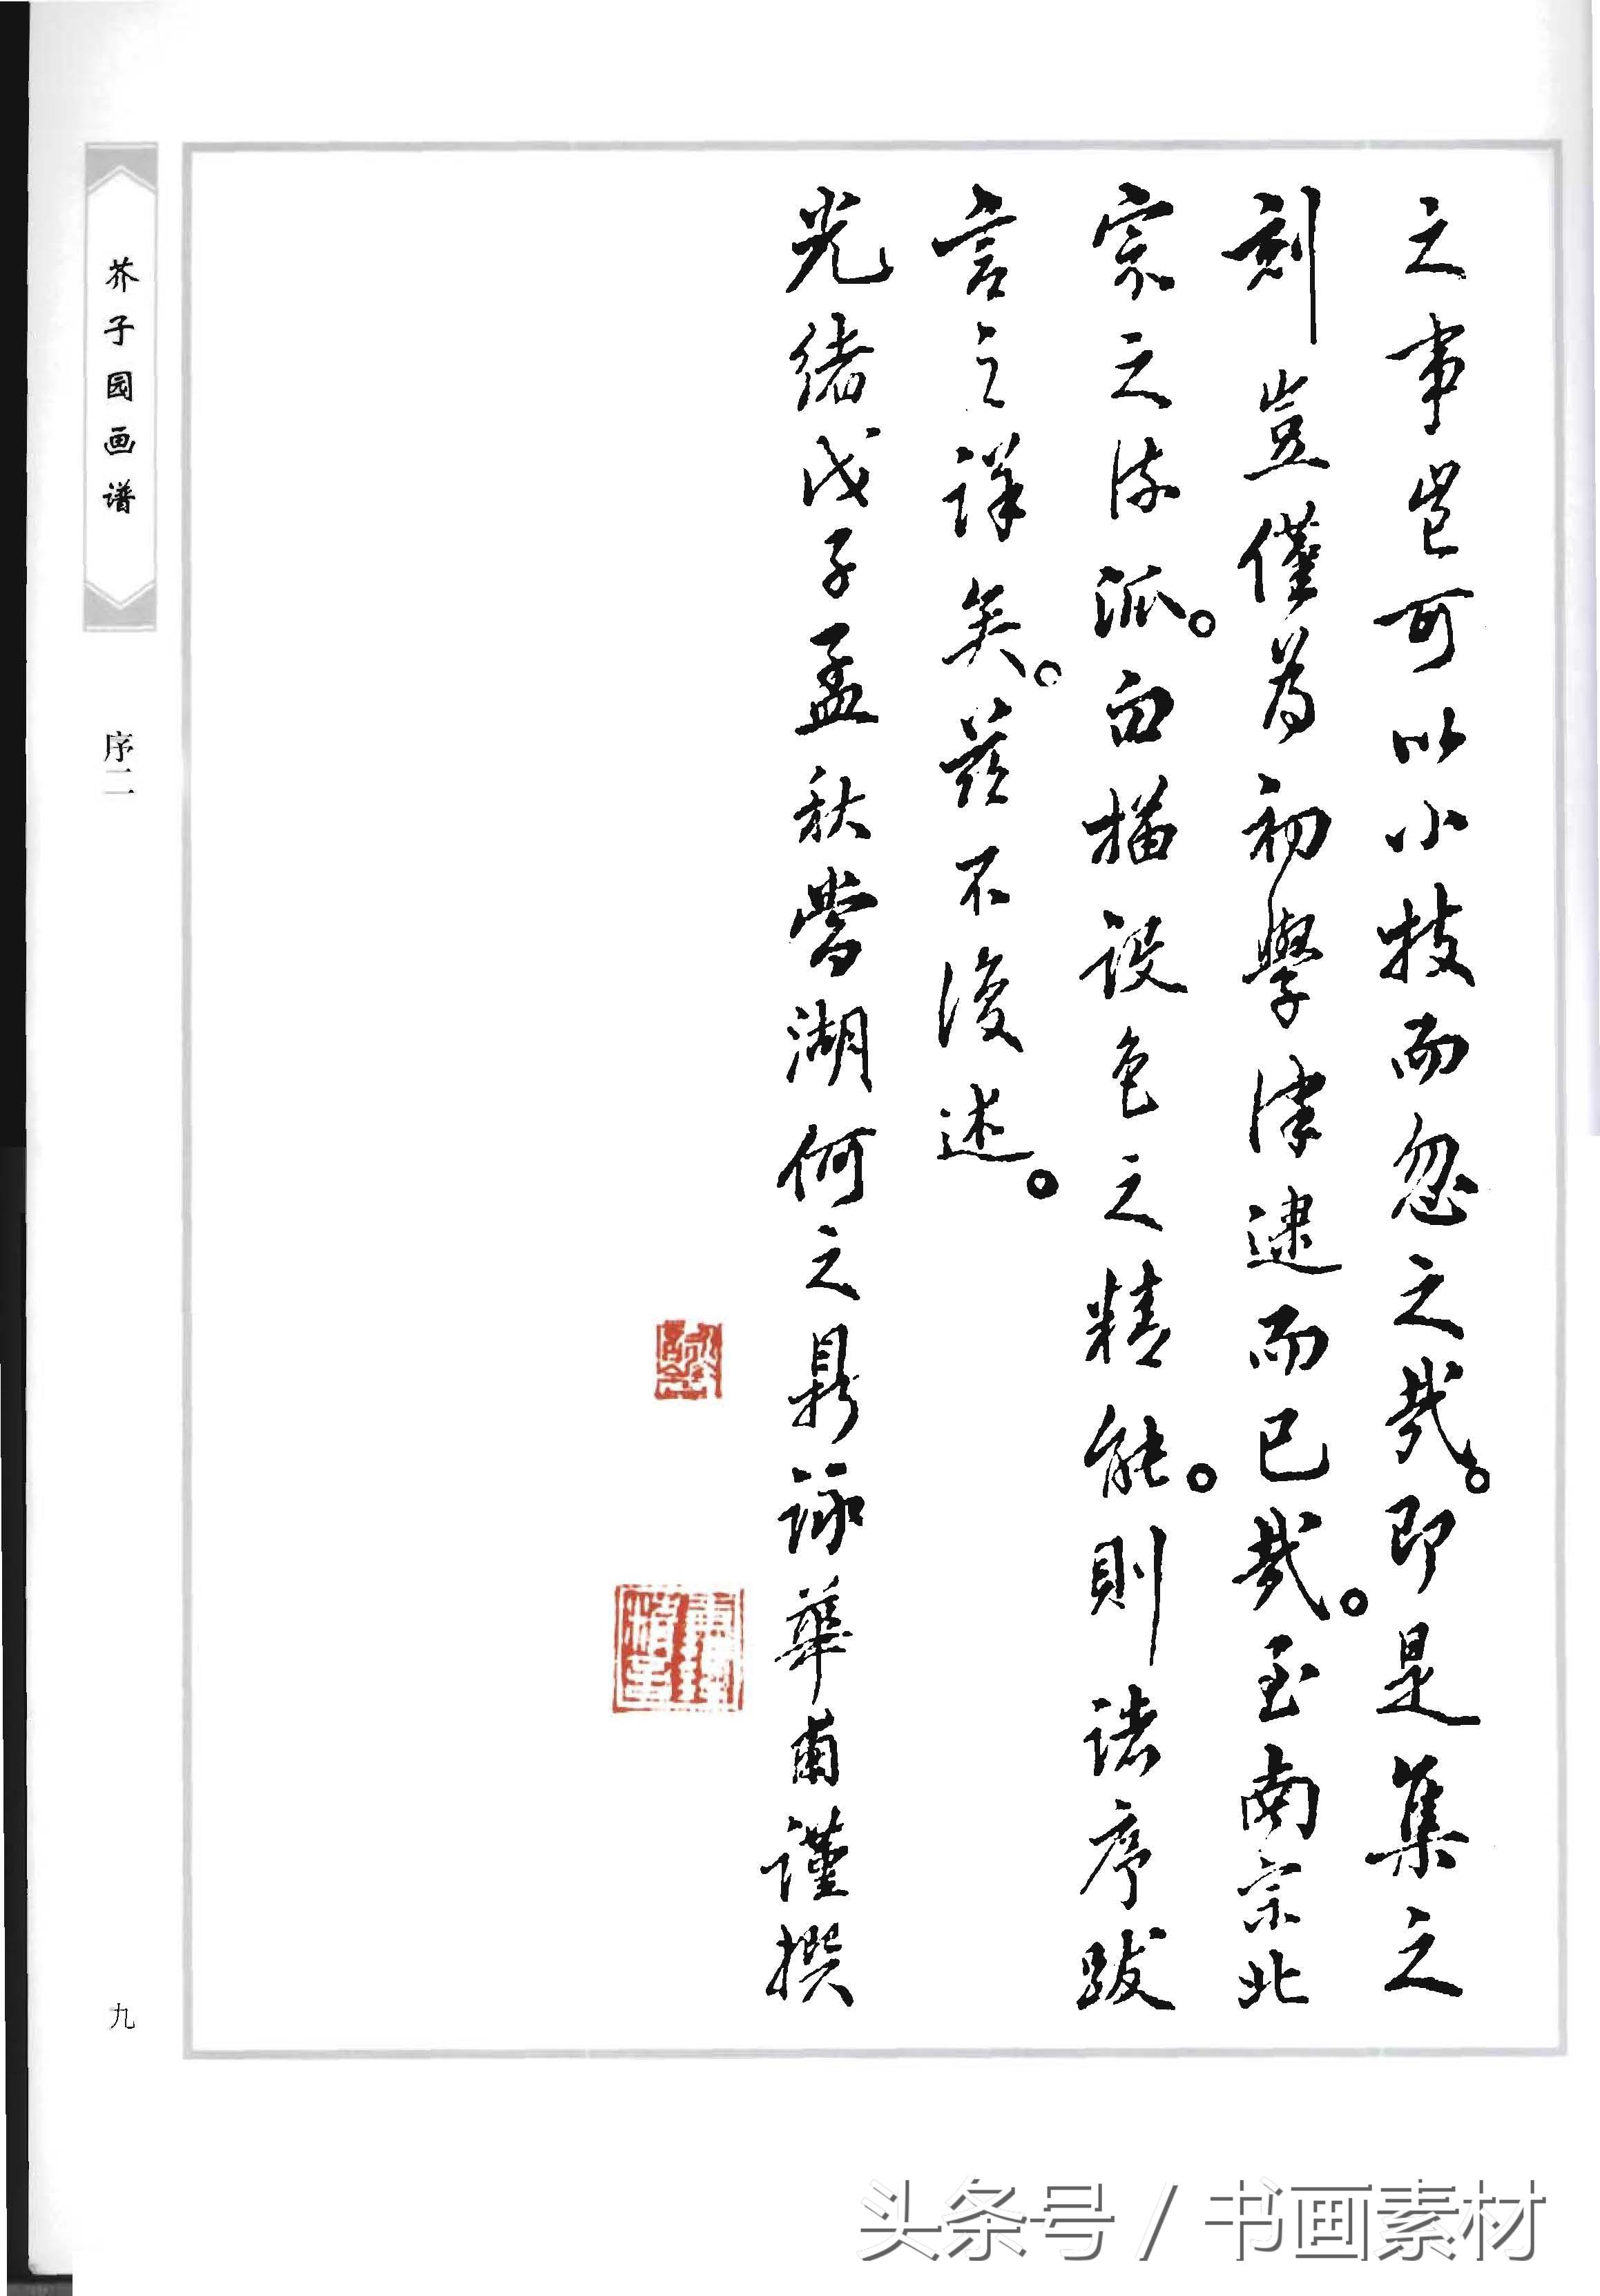 之事豈可以小技而忽之哉。即是集之
刻豈僅為初學津逮而已哉。至南宗北
宗之流派。白描設色之精能。則諸序跋
言之詳矣。茲不復述。
光緒戊子孟秋鴛湖何之鼎詠華甫謹撰
芥子园画谱
序二
九
头条号 / 书画素材